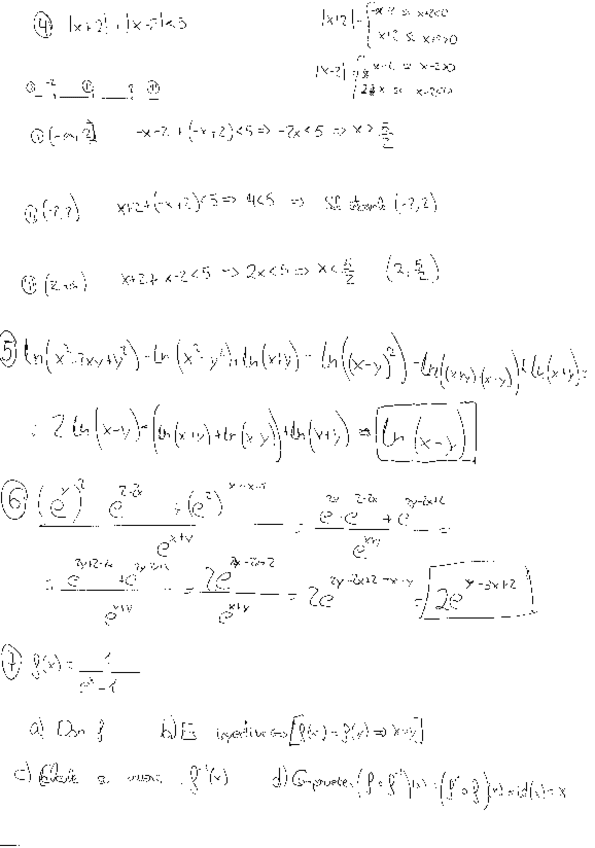 ④ |x+2| + |x-2| < 5
|x+2| = { -x-2 si x+2<0
x+2 si x+2>0
|x-2| = { x-2 si x-2>0
si x-2<0
-2 2
(-∞, 2] -x-2+(-x+2)<5 => -2x<5 => x>5/2
(-2,2) x+2+(-x+2)<5 => 4<5 => (-2,2)
x+2+x-2<5 => 2x<5 => x<5/2 (2, 5/2)
⑤ ln(x²-2xy+y²) - ln(x²-y²) + ln(x+y) = ln((x-y)²) - ln((x+y)(x-y)) + ln(x+y) =
= 2 ln(x-y) - (ln(x+y) + ln(x-y)) + ln(x+y) = ln(x-y)
⑥ (e^y)² e^(2-2x) + (e²) / e^(x+y) = (e^(2y) · e^(2-2x) + e^(2y-2x+2)) / e^(x+y) =
= (e^(2y+2-2x) + e^(2y-2x+2)) / e^(x+y) = 2e^(2y-2x+2) / e^(x+y) = 2e^(2y-2x+2-x-y) = 2e^(y-3x+2)
⑦ f(x) = 1 / (e^x - 1)
a) Dom f b) Es inyectiva <=> [f(x) = f(y) => x=y]
c) f⁻¹(x) d) (f∘f⁻¹)(x) = (f⁻¹∘f)(x) = id(x) = x